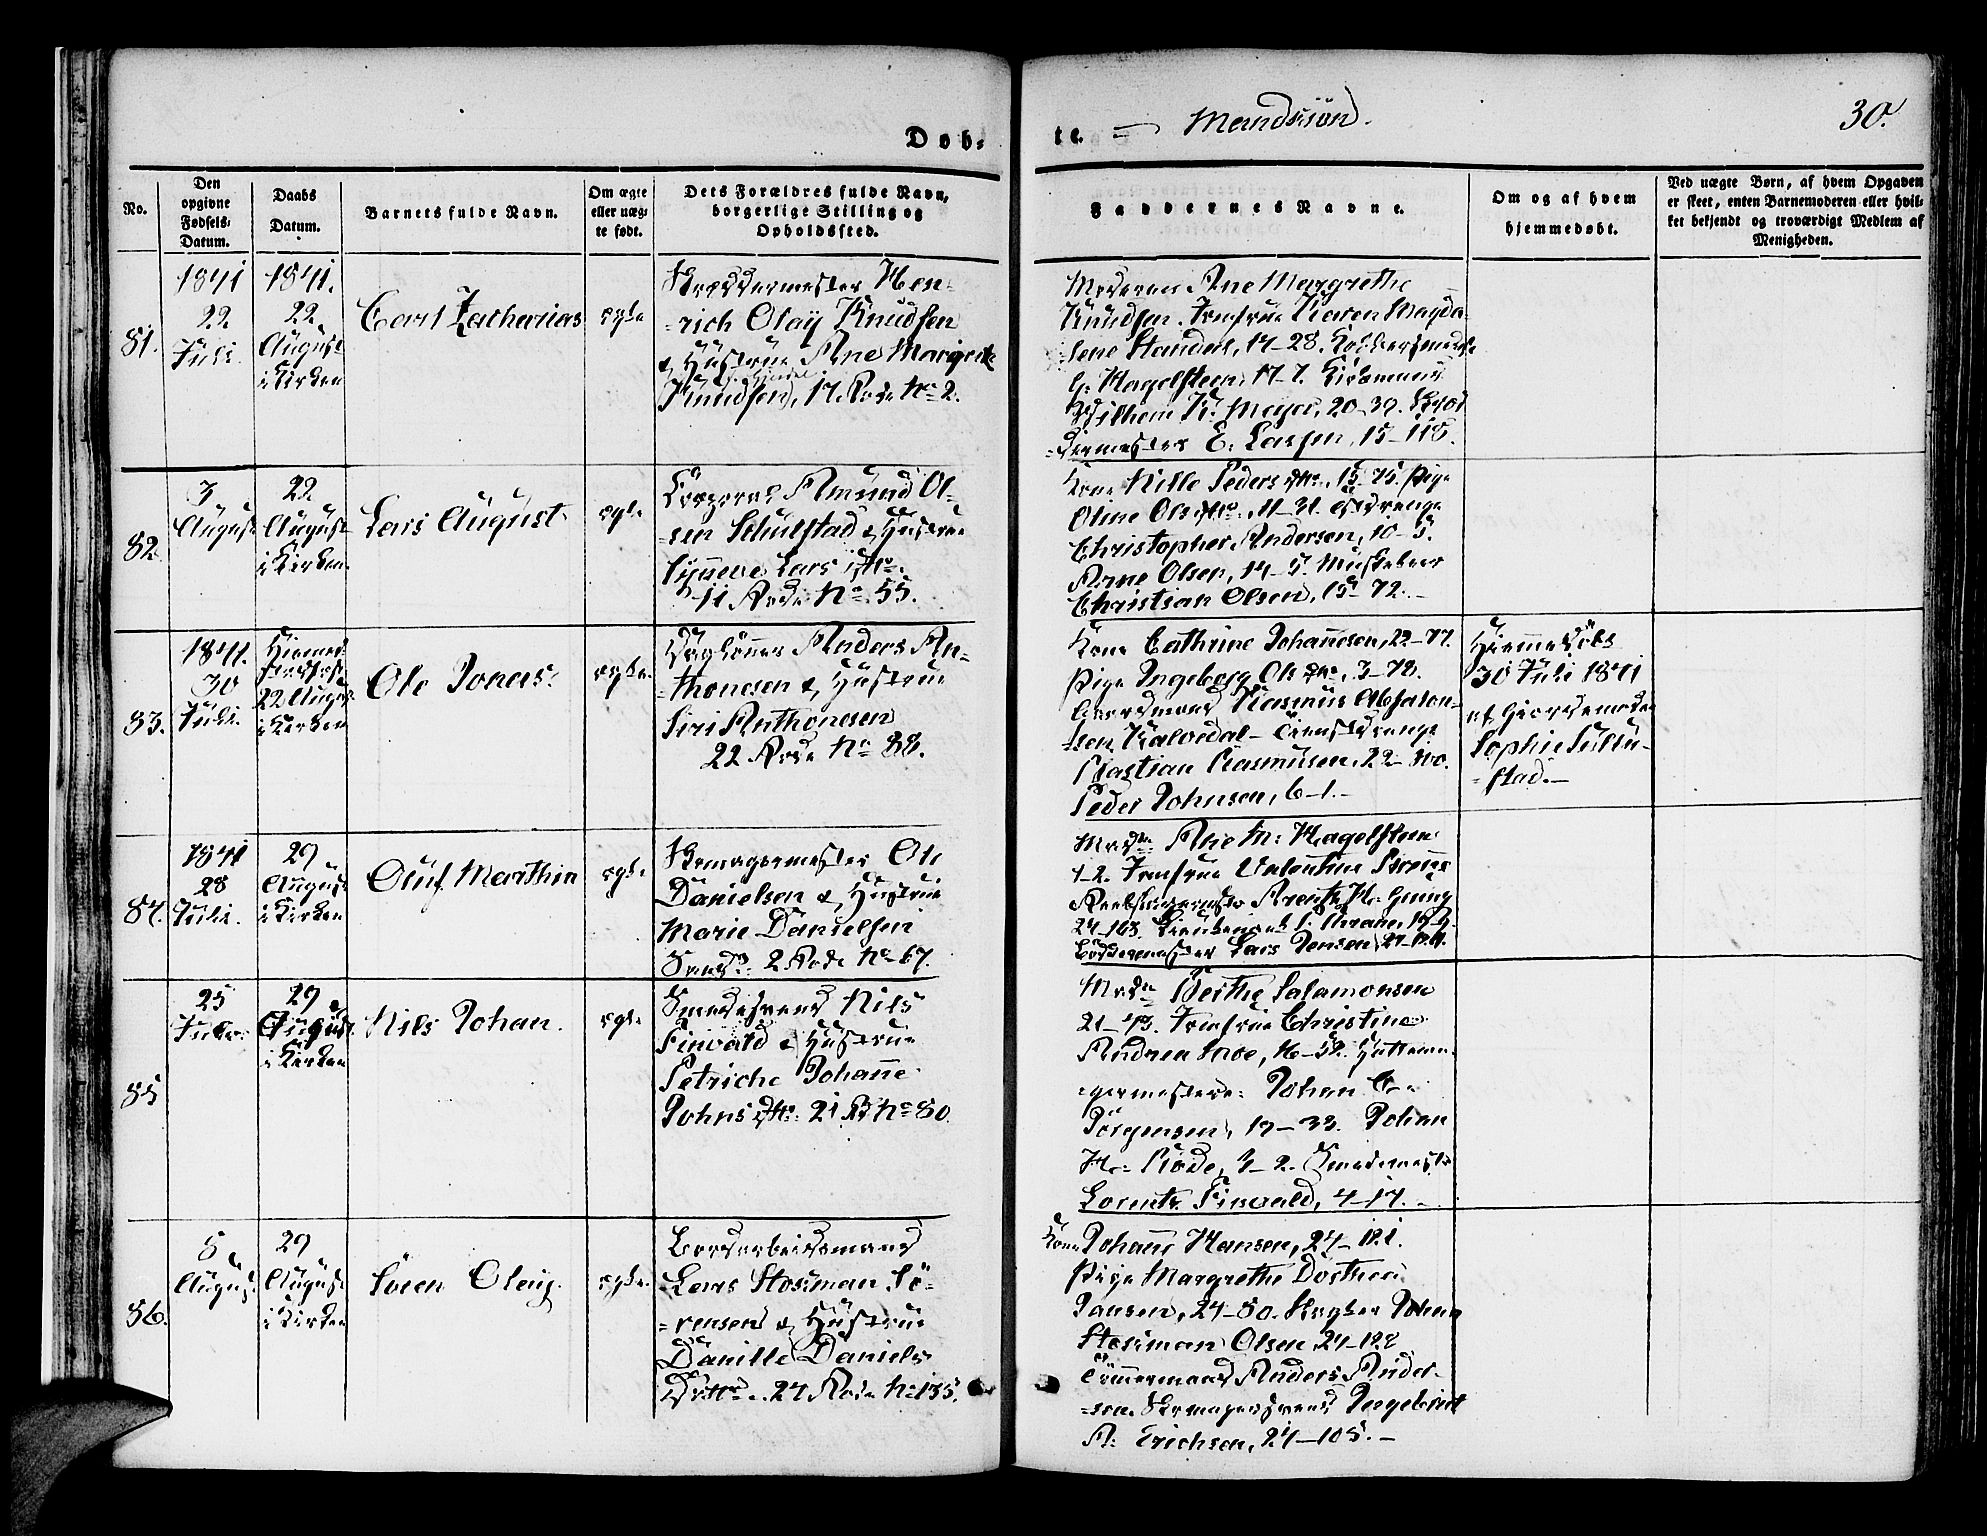 Døb-
te. = Mandkiøn.
30.
No.
Den opgivne Fødsels-Datum.
Daabs Datum.
Barnets fulde Navn.
Om ægte eller uæg-te født.
Dets Forældres fulde Navn, borgerlige Stilling og Opholdssted.
Faddernes Navne.
Om og af hvem hjemmedøbt.
Ved uægte Børn, af hvem Opgaven er skeet, enten Barnemoderen eller hvil-ket bekjendt og troværdigt Medlem af Menigheden.
81.
1841
22
Juli.
1841.
22
August
i Kirken
Carl Zacharias
ægte
Skræddermester Hen-
-rich Olay Knudsen
& Hüstrue Ane Margrete
Knudsen, 17. Rode No 2.
Moderen Ane Margrethe
Knudsen. Jomfrue Karen Magda-
-lene Stander, 14-28.
G. Hagelsteen, 17-7.
Wilhem K. Meyer, 20-39. Skræd
-dermester E. Larsen, 15-118.
82.
3
August
22
August
i Kirken.
Lars August.
ægte
Corporal Amund Ol-
-sen Schulstad & Hustrue
Synneve Lars dtr.
11 Rode No 55.
Kone Nille Peders dtr., 15-75. Pige
Oline Ols dtr. 11-31. Tjdrenge
Christopher Andersen, 10-5.
Arne Olsen, 14-5. Musketeer
Christian Olsen, 15-72.-
83.
1841.
30
Juli.
Hiemmed.
22 August
i Kirken
Ole Jonas.
ægte.
Dagløner Anders An-
-thonesen & Hüstrue
Siri Anthonesen
22 Rode No 88.
Kone Cathrine Johannesen, 22-77.
Pige Ingeborg Ols dtr., 3-78.
Gaardmand Rasmus Absalon-
-sen Kalvedal- Tienestdrenge
Bastian Rasmusen, 22-
Peder Johnsen, 6-1.-
Hiemmedøbt
30 Juli 1841
af Giordemoder
Sophie
-stad.-
84.
1841
28
Juli.
29
August
i Kirken
Oluf Marthin
ægte
Skomagermester Ole
Danielsen & Hustrue
Marie Danielsen
2 Rode No 67.
Mad. Ane M: Hagelsteen
1-2. Jomfrue Valentine
24-163.
Lars Jensen,
85
25
Juli.
29
August
i Kirken
Nils Johan.
ægte
Smedesvend Nils
Finvald & Hustrue
Petriche Johanne
Johns dtr. 21 R No 80.
Mad. Berthe Salamonsen
21-43. Jomfrue Christine
Andrea Moe, 16-52. Hattema-
-germestere: Johan C-
Jörgensen, 19-33. Johan
H- Rode, 3-2. Smedemester
Lorents Finvald, 4-17.-
86.
5
August
29
August
i Kirken
Sören Olay.
ægte.
Bordarbeidsmand
Lars Stosiman Sö-
-rensen & Hustrue
Danille Daniels
Datter. 24 Rode No 135.
Kone Johanne Hansen, 24-121.
Pige Margrethe Dorthea
Jansen, 24-80. Johan
Stosiman Olsen 24-128
Tömmermand Anders Ander-
-sen. Skomagersvend Ingebrigt
A: Erichsen, 24-105.-